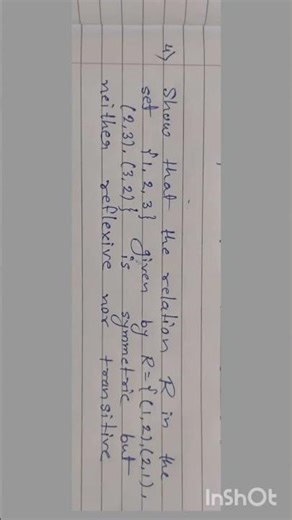 4) Show that the relation R in the
set {1, 2, 3} given by R={(1,2),(2,1),
(2,3),(3,2)} is symmetric but
neither reflexive nor transitive
InShOt